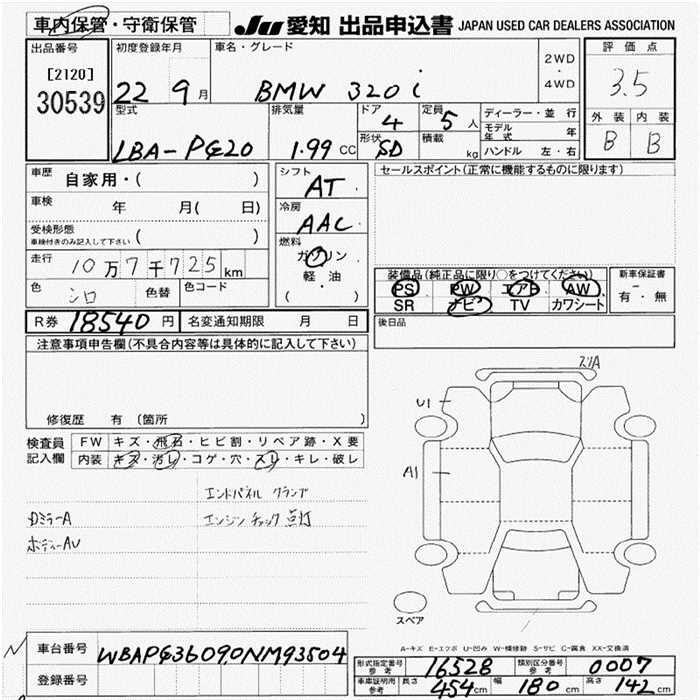 車内保管・守衛保管
JU 愛知 出品申込書 JAPAN USED CAR DEALERS ASSOCIATION
出品番号
[2120]
30539
初度登録年月
22 9月
車名・グレード
BMW 320i
2WD
・
4WD
評価点
3.5
外装 内装
B B
型式
LBA-PG20
排気量
1.99 CC
ドア
4
定員
5人
形状
SD
積載
kg
ディーラー・並行
モデル年式 年
ハンドル 左・右
車歴 自家用・( )
車検 年 月( 日)
受検形態
車検付きのみ記入して下さい ( )
走行 10万7千725km
色 シロ 色替 色コード
シフト
AT
冷房
AAC
燃料
ガソリン
・
軽・油
( ・ )
セールスポイント(正常に機能するものに限ります)
装備品(純正品に限り○をつけてください)
PS PW エアB AW
SR ナビ TV カワシート
新車保証書
有・無
後日品
R券 18540円 名変通知期限 月 日
注意事項申告欄(不具合内容等は具体的に記入して下さい)
修復歴 有 〔箇所 〕
検査員記入欄
FW キズ・飛石・ヒビ割・リペア跡・X要
内装 キズ・汚レ・コゲ・穴・スレ・キレ・破レ
エンドパネル クランプ
DミラーA
エンジンチェック点灯
ボディーAU
スリA
U1
A1
スペア
A-キズ E-エクボ U-凹み W-補修跡 S-サビ C-腐食 XX-交換済
車台番号 WBAPG36090NM93504
登録番号
形式指定番号
参考
16528
類別区分番号
参考
0007
車庫証明用
参考
長さ 454cm 幅 180cm 高さ 142cm